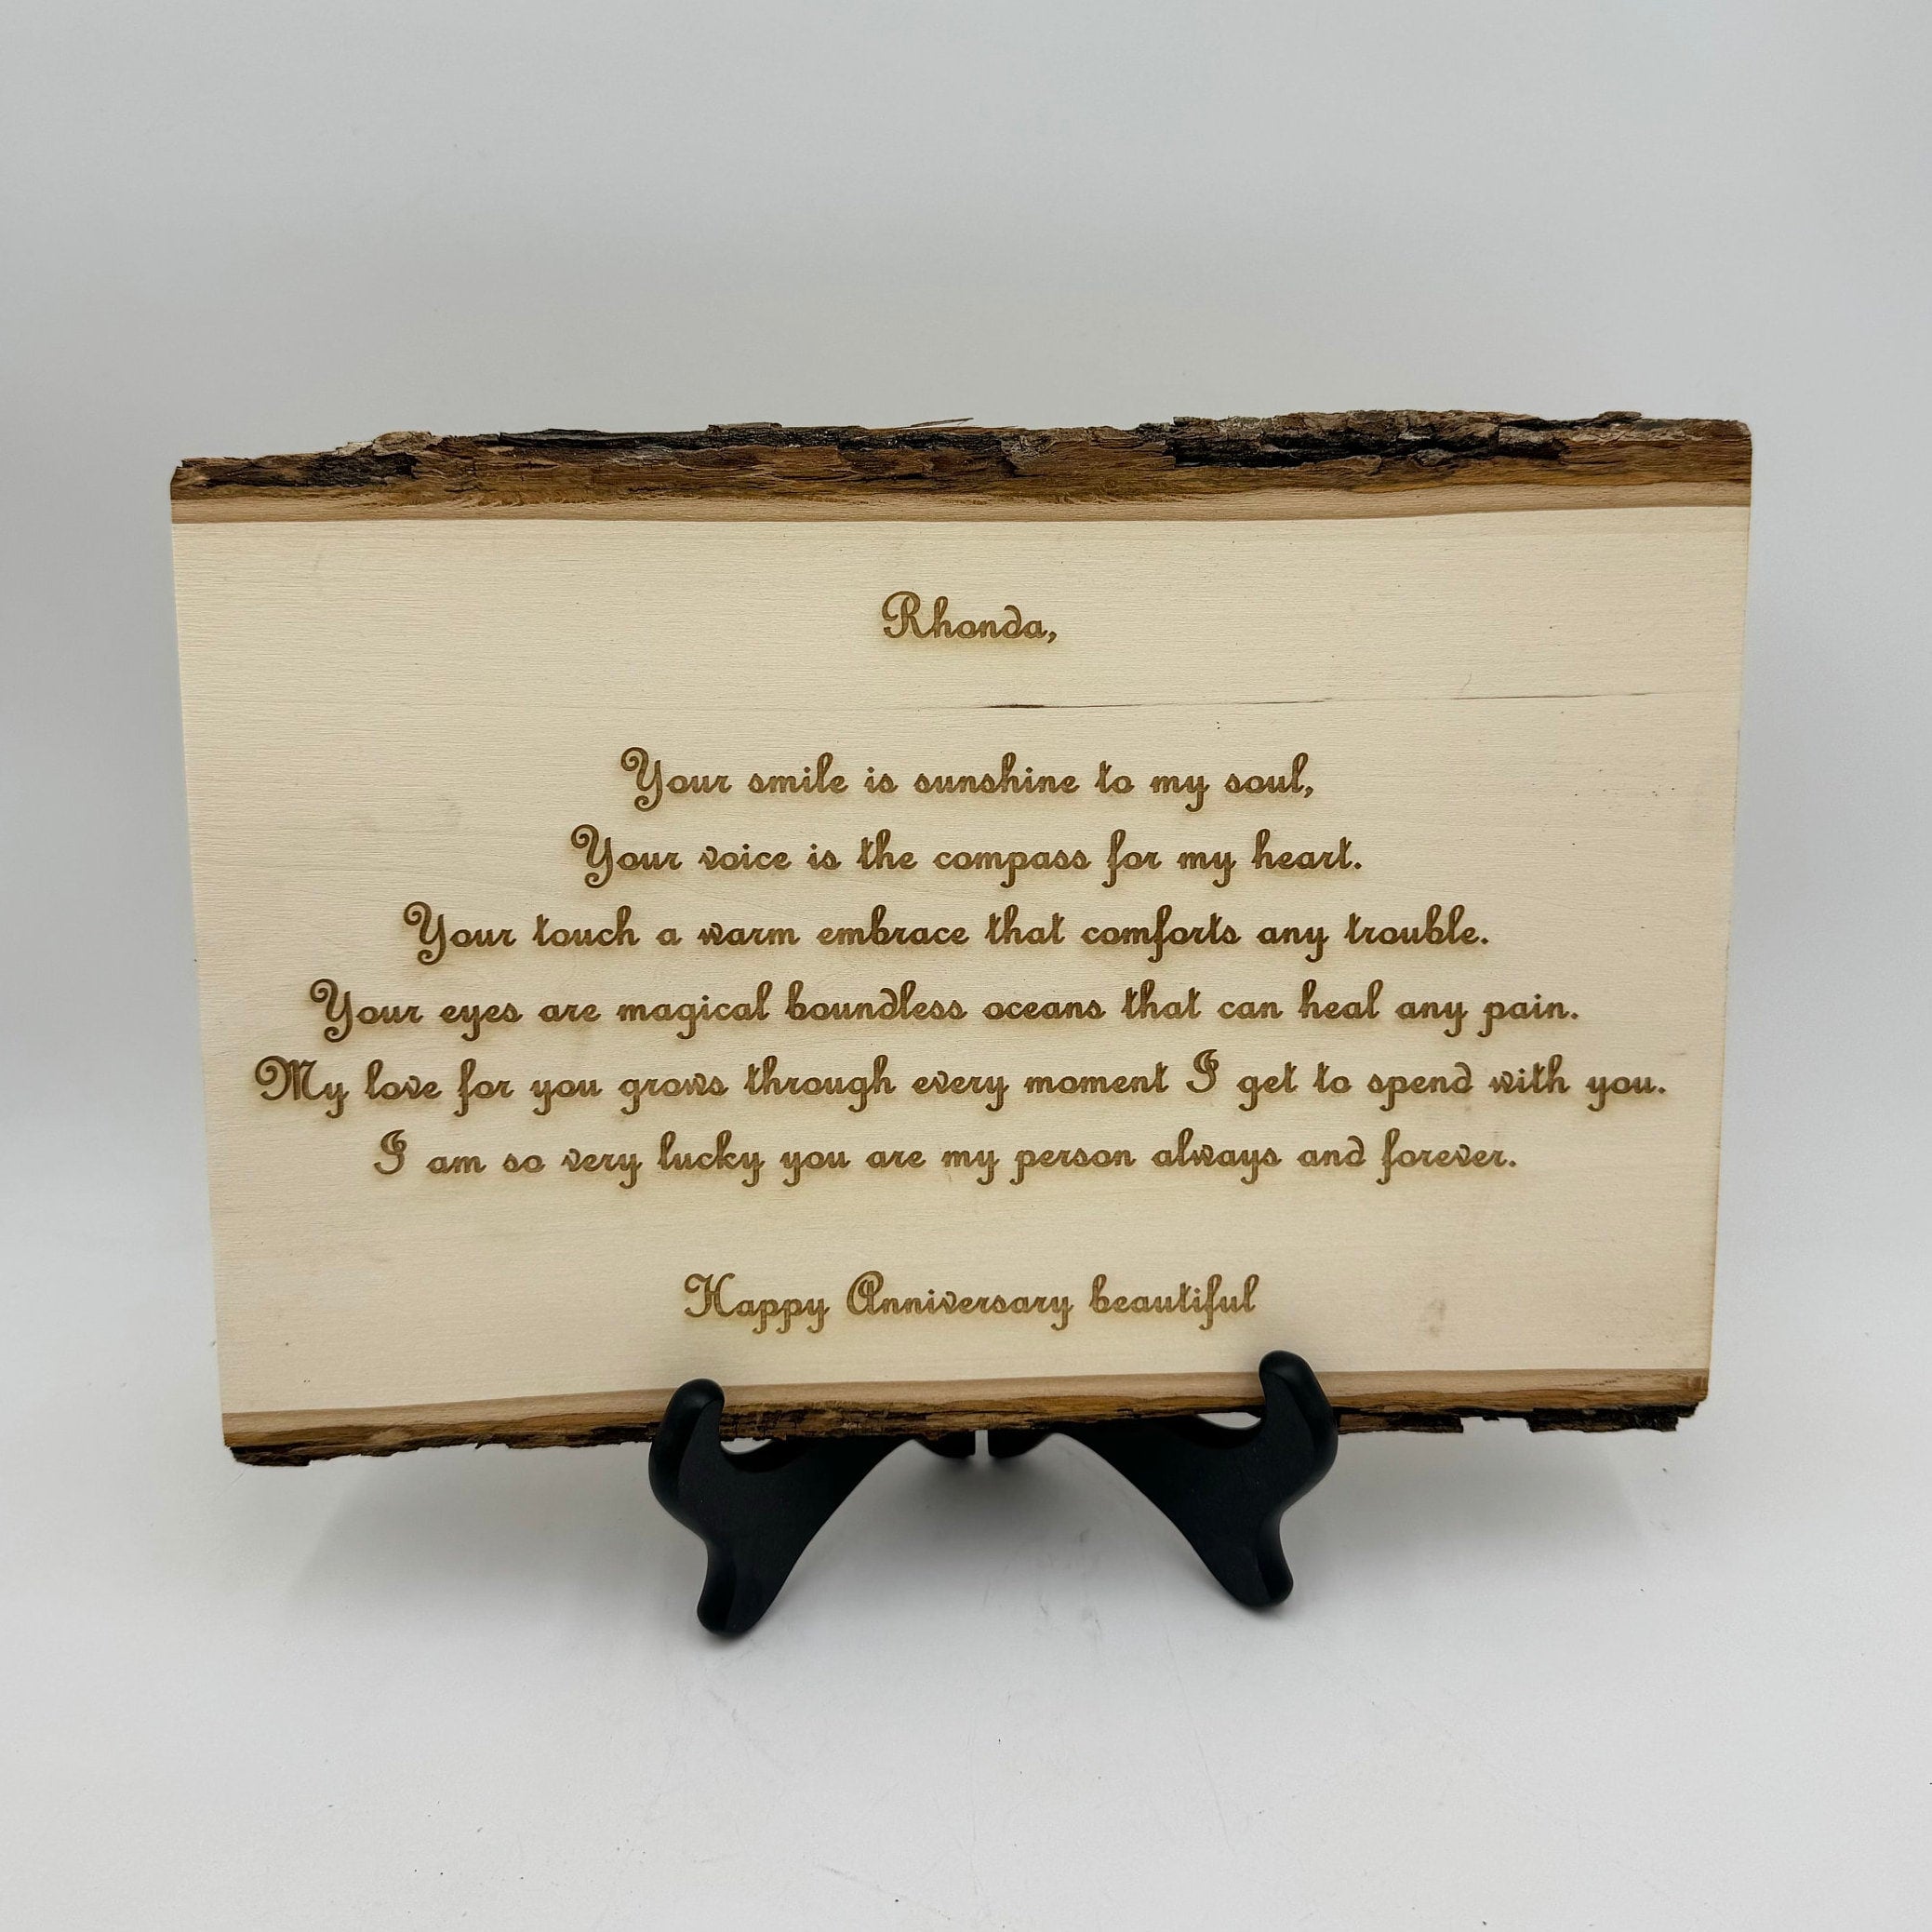 Rhonda,
Your smile is sunshine to my soul,
Your voice is the compass for my heart.
Your touch a warm embrace that comforts any trouble.
Your eyes are magical boundless oceans that can heal any pain.
My love for you grows through every moment I get to spend with you.
I am so very lucky you are my person always and forever.
Happy Anniversary beautiful